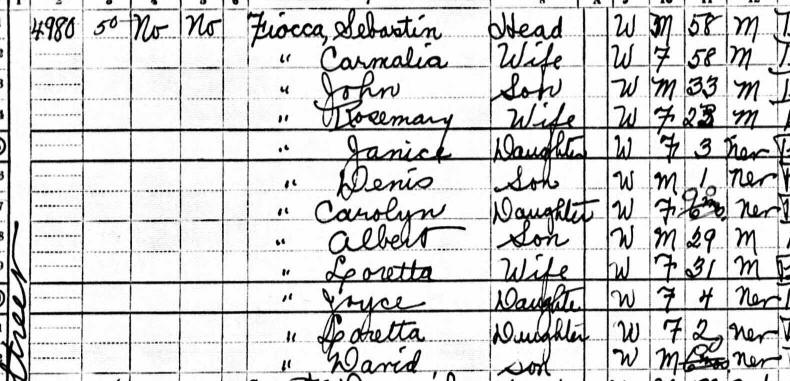 4980 50 No No Fiocca, Sebastin Head W M 58 M
" Carmalia Wife W F 58 M
" John Son W M 33 M
" Rosemary Wife W F 23 M
" Janice Daughter W F 3 Ner
" Denis Son W M 1 Ner
" Carolyn Daughter W F Ner
" Albert Son W M 29 M
" Loretta Wife W F 31 M
" Joyce Daughte W F 4 Ner
" Loretta Daughter W F 2 Ner
" David son W M Ner
street